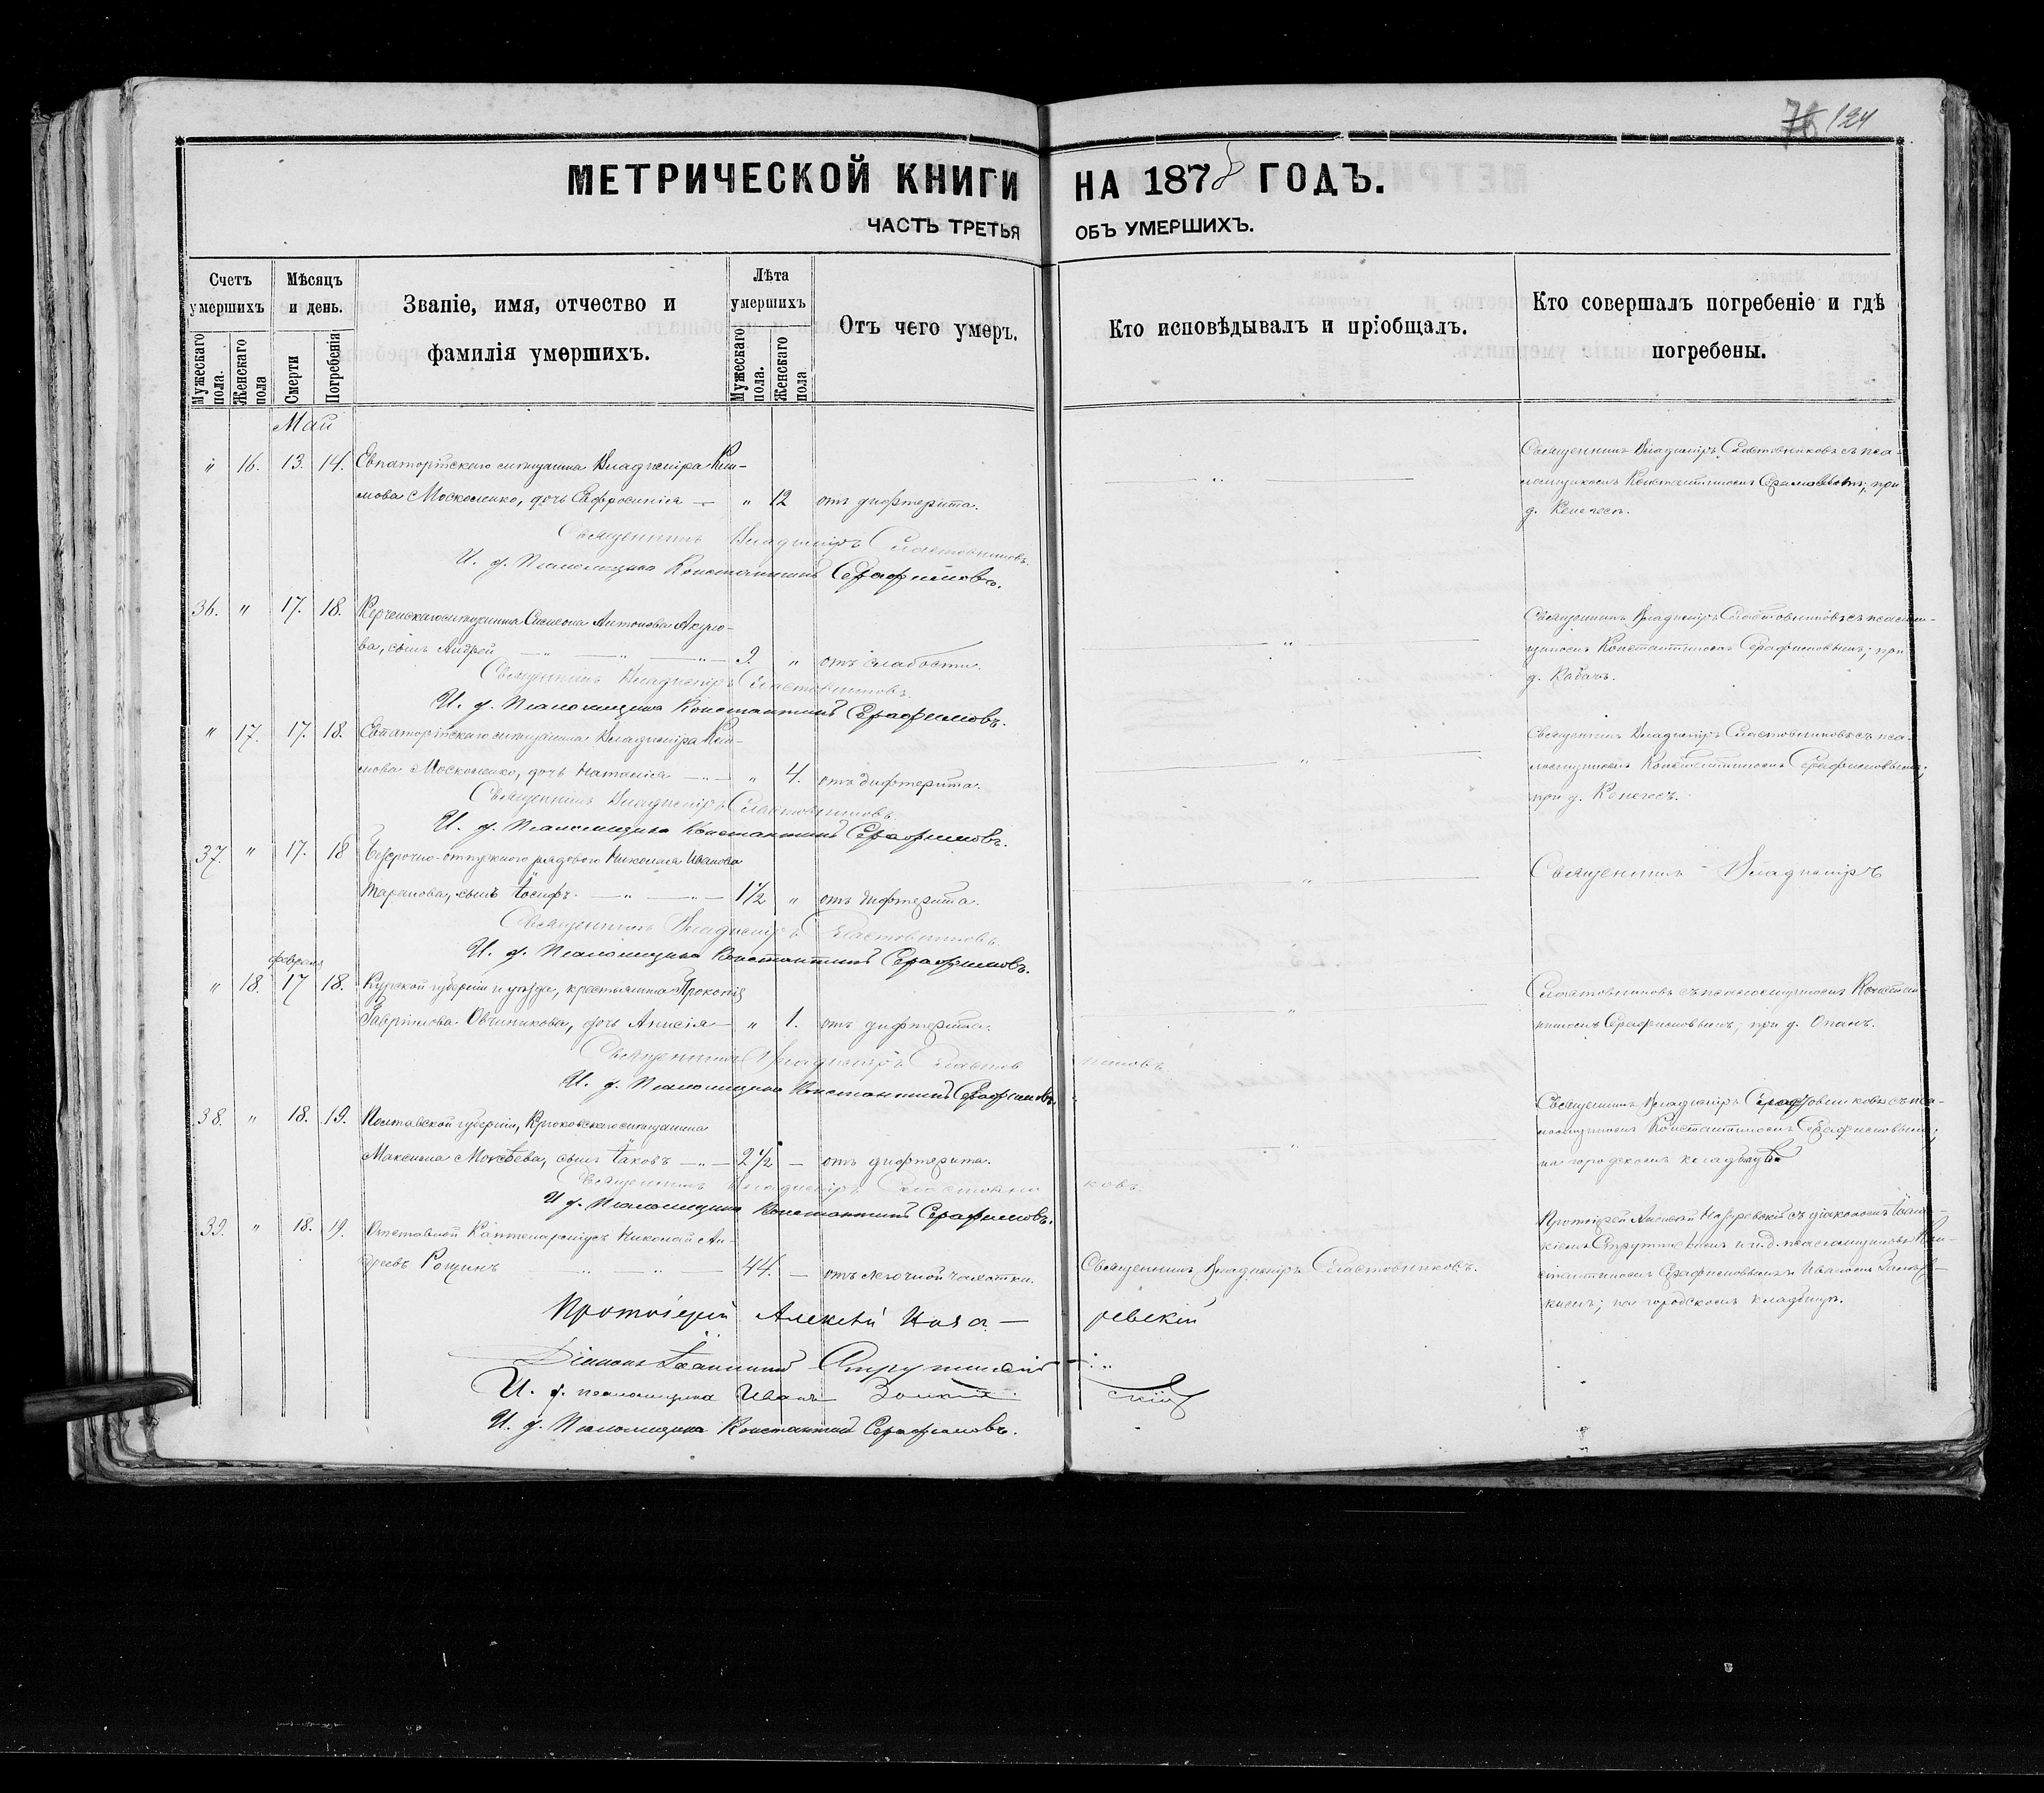 76 124
МЕТРИЧЕСКОЙ КНИГИ НА 1878 ГОДЪ.
ЧАСТЬ ТРЕТЬЯ ОБЪ УМЕРШИХЪ.
Счетъ умершихъ
Мужескаго пола.
Женскаго пола
Мѣсяцъ и день.
Смерти
Погребенія
Званіе, имя, отчество и
фамилія умершихъ.
Лѣта умершихъ
Мужескаго пола.
Женскаго пола
Отъ чего умеръ.
Кто исповѣдывалъ и пріобщалъ.
Кто совершалъ погребеніе и гдѣ
погребены.
Май
" 16. 13. 14. Евпаторійскаго мѣщанина Владиміра
мова Москаленко, дочь Евфросинія — " 12 отъ дифтерита.
Священникъ Владиміръ Сластовниковъ съ псаломщикомъ Константиномъ при
д. Кенегесъ.
Священникъ Владиміръ Сластовниковъ.
И. д. Псаломщика Константинъ Серафимовъ.
36. " 17. 18. Керченскаго мѣщанина Симеона Антонова Акуло-
ва, сынъ Андрей 2. " отъ слабости.
Священникъ Владиміръ Сластовниковъ съ псалом-
щикомъ Константиномъ Серафимовымъ; при
д.
Священникъ Владиміръ Сластовниковъ.
И. д. Псаломщика Константинъ Серафимовъ.
" 17. 17. 18. Евпаторійскаго мѣщанина Владиміра
мова Москаленко, дочь Наталія — " 4. отъ дифтерита.
Священникъ Владиміръ Сластовниковъ съ пса-
ломщикомъ Константиномъ Серафимовымъ;
при д. Кенегесъ.
Священникъ Владиміръ Сластовниковъ.
И. д. Псаломщика Константинъ Серафимовъ.
37. " 17. 18 Безсрочно-отпускного рядового Николая Иванова
Таранова, сынъ Іосифъ. 1 1/2 " отъ дифтерита.
Священникъ Владиміръ
Священникъ Владиміръ Сластовниковъ.
И. д. Псаломщика Константинъ Серафимовъ.
февраля
" 18. 17 18. Курской губерніи и уѣзда, крестьянина Прокопія
Гаврилова Овчинникова, дочь Анисія — " 1. отъ дифтерита.
Сластовниковъ съ псаломщикомъ Констан
тиномъ Серафимовымъ; при д. Опанъ.
Священникъ Владиміръ Сластов никовъ.
И. д. Псаломщика Константинъ Серафимовъ.
38. " 18. 19. Полтавской губерніи, Крюковскаго мѣщанина
Максима сынъ Іаковъ 2 1/2 — отъ дифтерита.
Священникъ Владиміръ съ пса-
ломщикомъ Константиномъ Серафимовымъ;
на городскомъ кладбищѣ
Священникъ Владиміръ Сластовни ковъ.
И. д. Псаломщика Константинъ Серафимовъ.
39. " 18. 19. Отставной Каптенармусъ Николай Ан-
дреевъ Рощинъ 44. — отъ легочной чахотки.
Священникъ Владиміръ Сластовниковъ.
Протоіерей Алексѣй Назаревскій съ діакономъ Іоан-
и и. д. псаломщиковъ Кон-
стантиномъ Серафимовымъ и Иваномъ
на городскомъ кладбищѣ.
Протоіерей Алексѣй Наза— ревскій
Діаконъ Іоанникій Струтин скій
И. д. псаломщика Иванъ
И. д. Псаломщика Константинъ Серафимовъ.